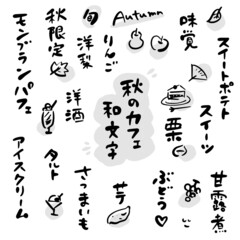 Autumn
味覚
スイートポテト
スイーツ
甘露煮
栗
ぶどう♡
いご
秋のカフェ
和文字
りんご
芋
さつまいも
旬
洋梨
洋酒
タルト
秋限定
モンブランパフェ
アイスクリーム